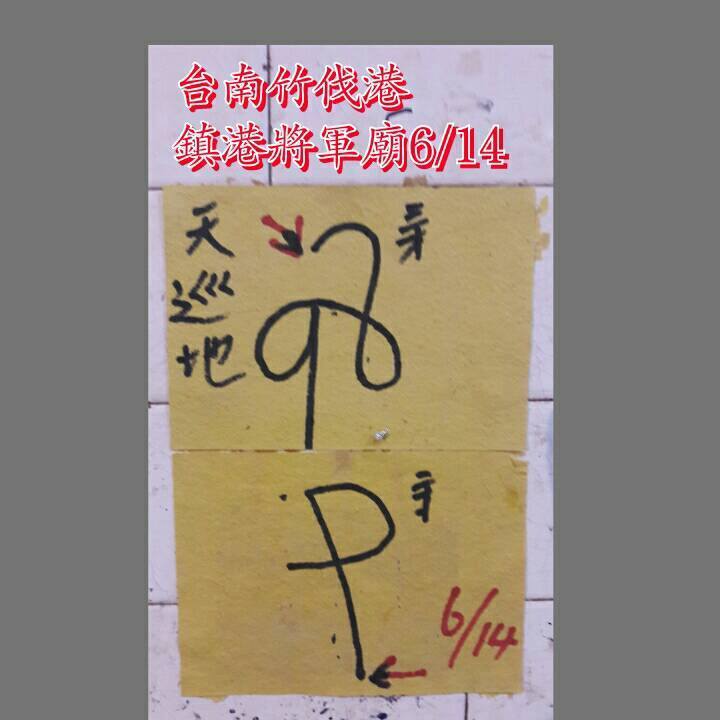 台南竹伐港
鎮港將軍廟6/14
天巡地
6/14